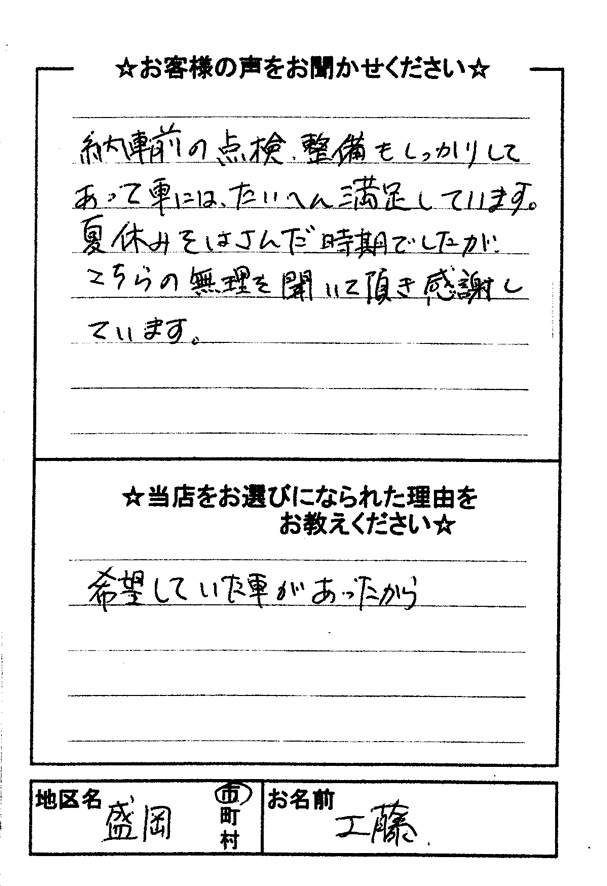 ☆お客様の声をお聞かせください☆
納車前の点検、整備もしっかりして
あって車には、たいへん満足しています。
夏休みをはさんだ時期でしたが、
こちらの無理を聞いて頂き感謝し
ています。
☆当店をお選びになられた理由を
お教えください☆
希望していた車があったから
地区名 盛岡 市町村 お名前 工藤